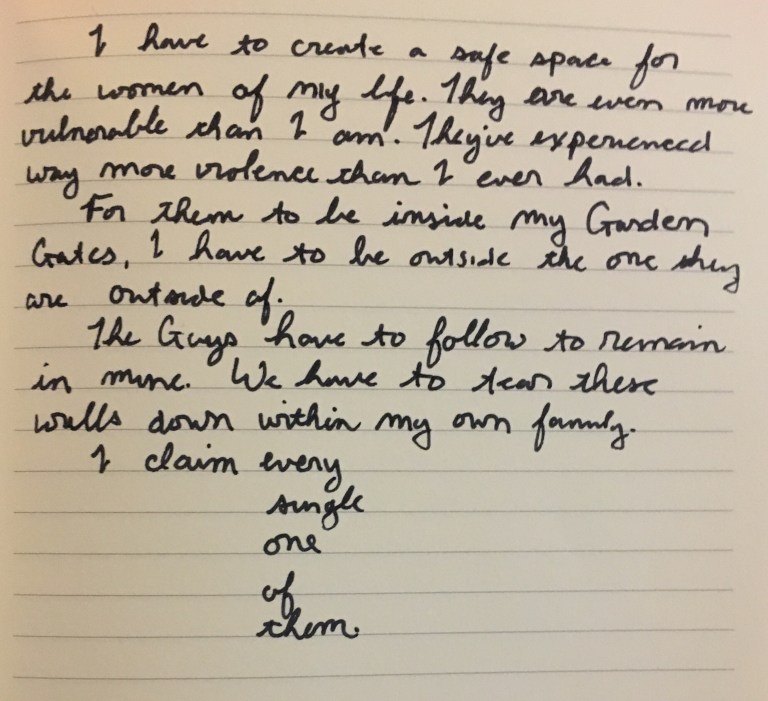 I have to create a safe space for
the women of my life. They are even more
vulnerable than I am. They've experienced
way more violence than I ever had.
For them to be inside my Garden
Gates, I have to be outside the one they
are outside of.
The Guys have to follow to remain
in mine. We have to tear these
walls down within my own family.
I claim every
single
one
of
them.